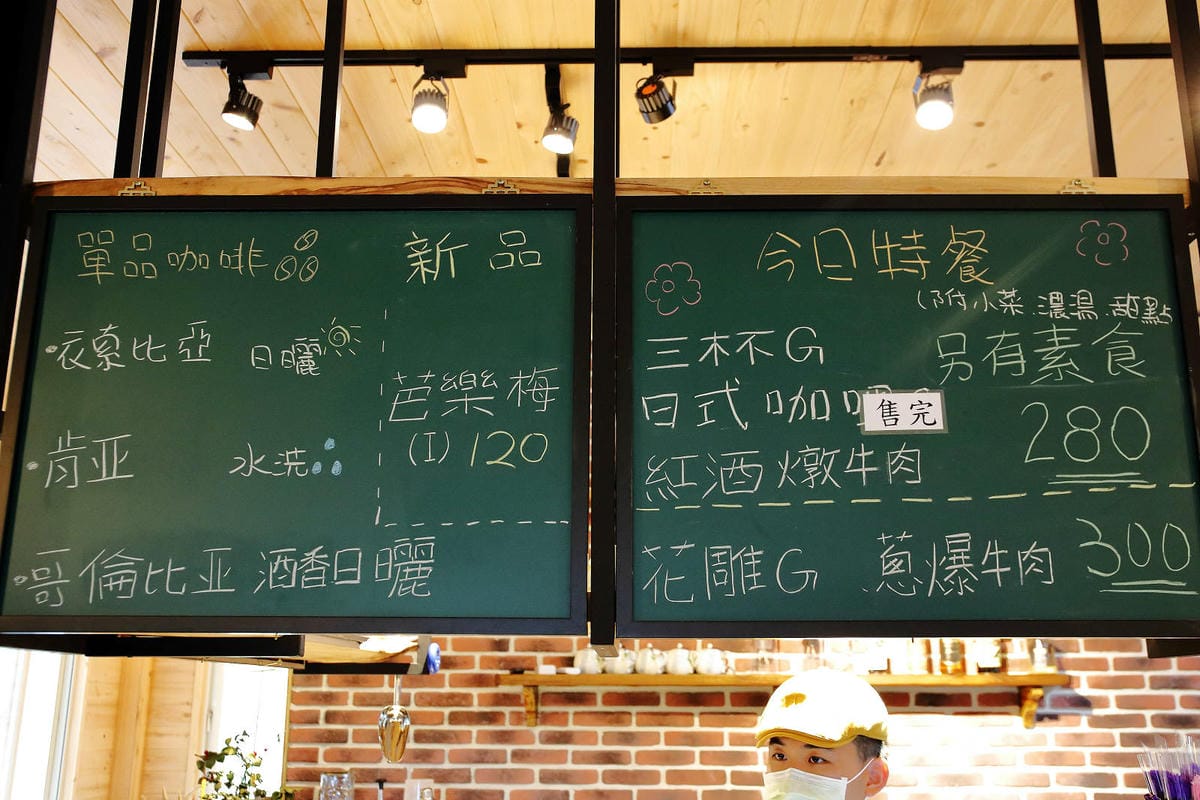 單品咖啡
衣索比亞 日曬
肯亚 水洗
哥倫比亚 酒香日曬
新品
芭樂梅
(I) 120
今日特餐
(附小菜.濃湯.甜點
另有素食
三杯不G
日式咖
售完
紅酒燉牛肉
280
花雕G 蔥爆牛肉 300